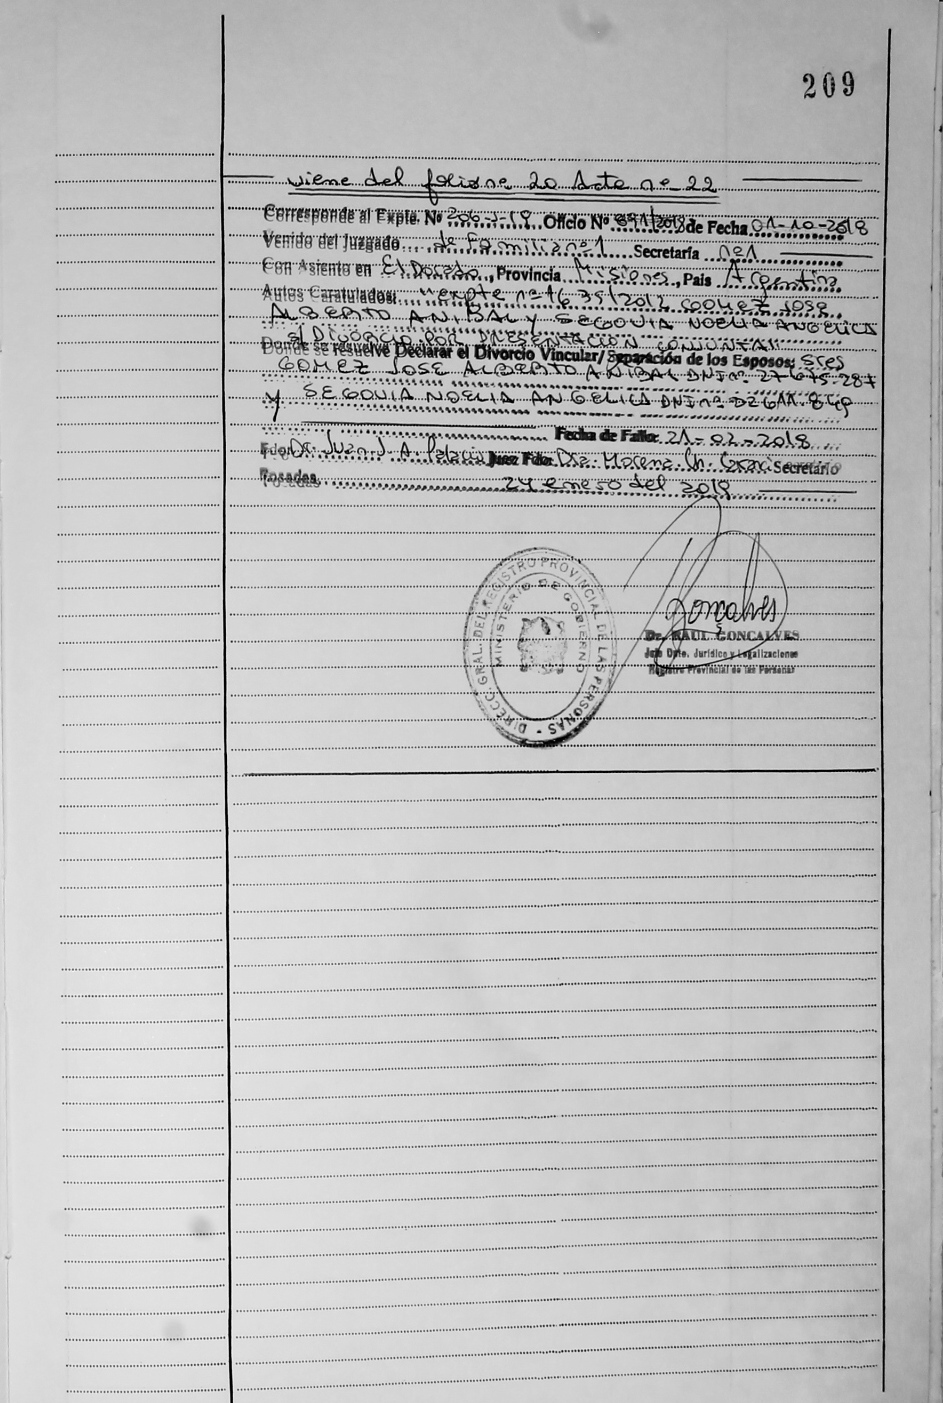 209
viene del folio nº 20 Acta nº 22
Corresponde al Expte. Nº 206-J-19. Oficio Nº 891/2018 de Fecha 01-10-2018
Venido del Juzgado de Familia nº 1 Secretaría nº 1
Con Asiento en El Dorado, Provincia Misiones, Pais Argentina
Autos Caratulados: "expte nº 1639/2012 GOMEZ JOSE
ALBERTO ANIBAL y SEGOVIA NOELIA ANGELICA
s/ DIVORCIO POR PRESENTACION CONJUNTA"
Donde se resuelve Declarar el Divorcio Vincular/ Separación de los Esposos: Sres
GOMEZ JOSE ALBERTO ANIBAL DNI nº 27-675-287
y SEGOVIA NOELIA ANGELICA DNI nº
Fecha de Fallo: 21-02-2018
Fdo. Dr. Juan J. A. Palacio Juez Fdo: Dra. Morena Secretario
Posadas, 24 enero del 2019
Gonçalves
Dr. RAUL GONCALVES
Jefe Dpto. Jurídico y Legalizaciones
Registro Provincial de las Personas
DIRECC. GRAL. DEL REGISTRO PROVINCIAL DE LAS PERSONAS -
MINISTERIO DE GOBIERNO